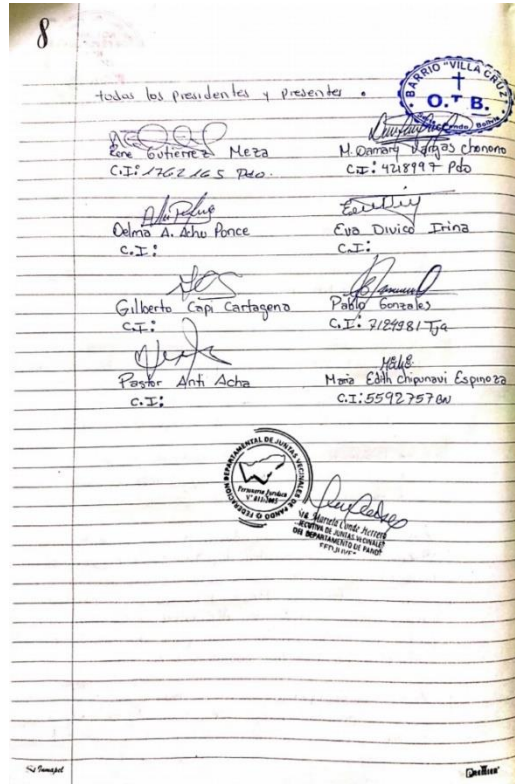 8
todas los presidentes y presentes.
BARRIO "VILLA CRUZ"
O.T.B.
Rene Gutierrez Meza
C.I: 1762165 Pdo.
M. Damary Vargas chonono
C.I: 4218997 Pdo
Delma A. Achu Ponce
C.I:
Eva Divico Irina
C.I:
Gilberto Capi Cartagena
C.I:
Pablo Gonzales
C.I: 7124981 Tja
Pastor Anti Acha
C.I:
Maria Edith Chipunavi Espinoza
C.I: 5592757 BN
FEDERACION DEPARTAMENTAL DE JUNTAS VECINALES DE PANDO
Personeria Juridica
N° 011/2005
Marieta Conde Herrera
EJECUTIVA DE JUNTAS VECINALES
DEL DEPARTAMENTO DE PANDO